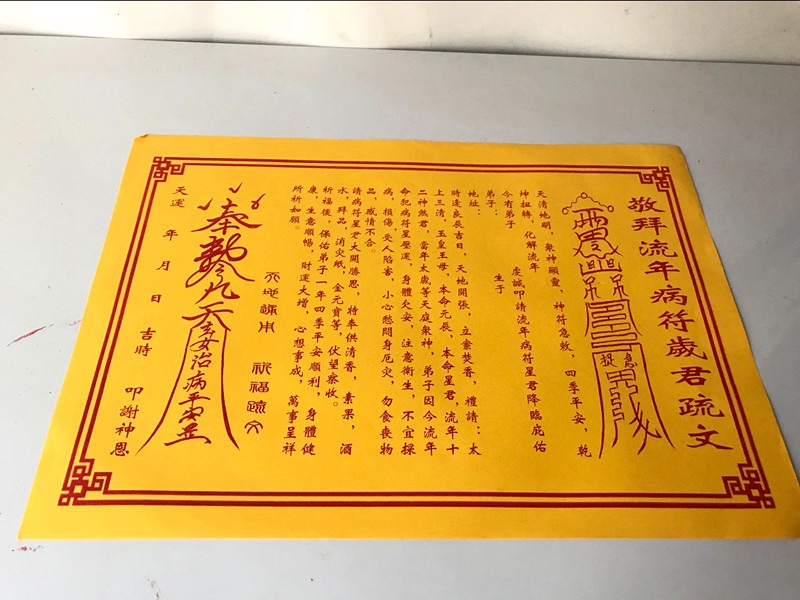 敬拜流年病符歲君疏文
天清地明，眾神顯靈，神符急救，四季平安，乾
坤扭轉，化解流年
今有弟子 虔誠叩請流年病符星君降臨庇佑
弟子： 生于
地址：
時逢良辰吉日，天地開張，立案焚香，禮請：太
上三清，玉皇王母，本命元辰，本命星君，流年十
二神煞君，當年太歲等天庭眾神，弟子因今流年
命犯病符星壓運，身體欠安，注意衛生，不宜探
病，損傷，受人陷害，小心愁悶身厄災，勿食喪物
品，感情不合。
請病符星君大開勝恩，特奉供清香，素果，酒
水，拜品，消災紙，金元寶等，伏望察收。
祈福後，保佑弟子一年四季平安順利，身體健
康，生意順暢，財運大增，心想事成，萬事呈祥
所祈如願。
祈福疏文
奉
九天
治病平安
天運 年 月 日 吉時 叩謝神恩